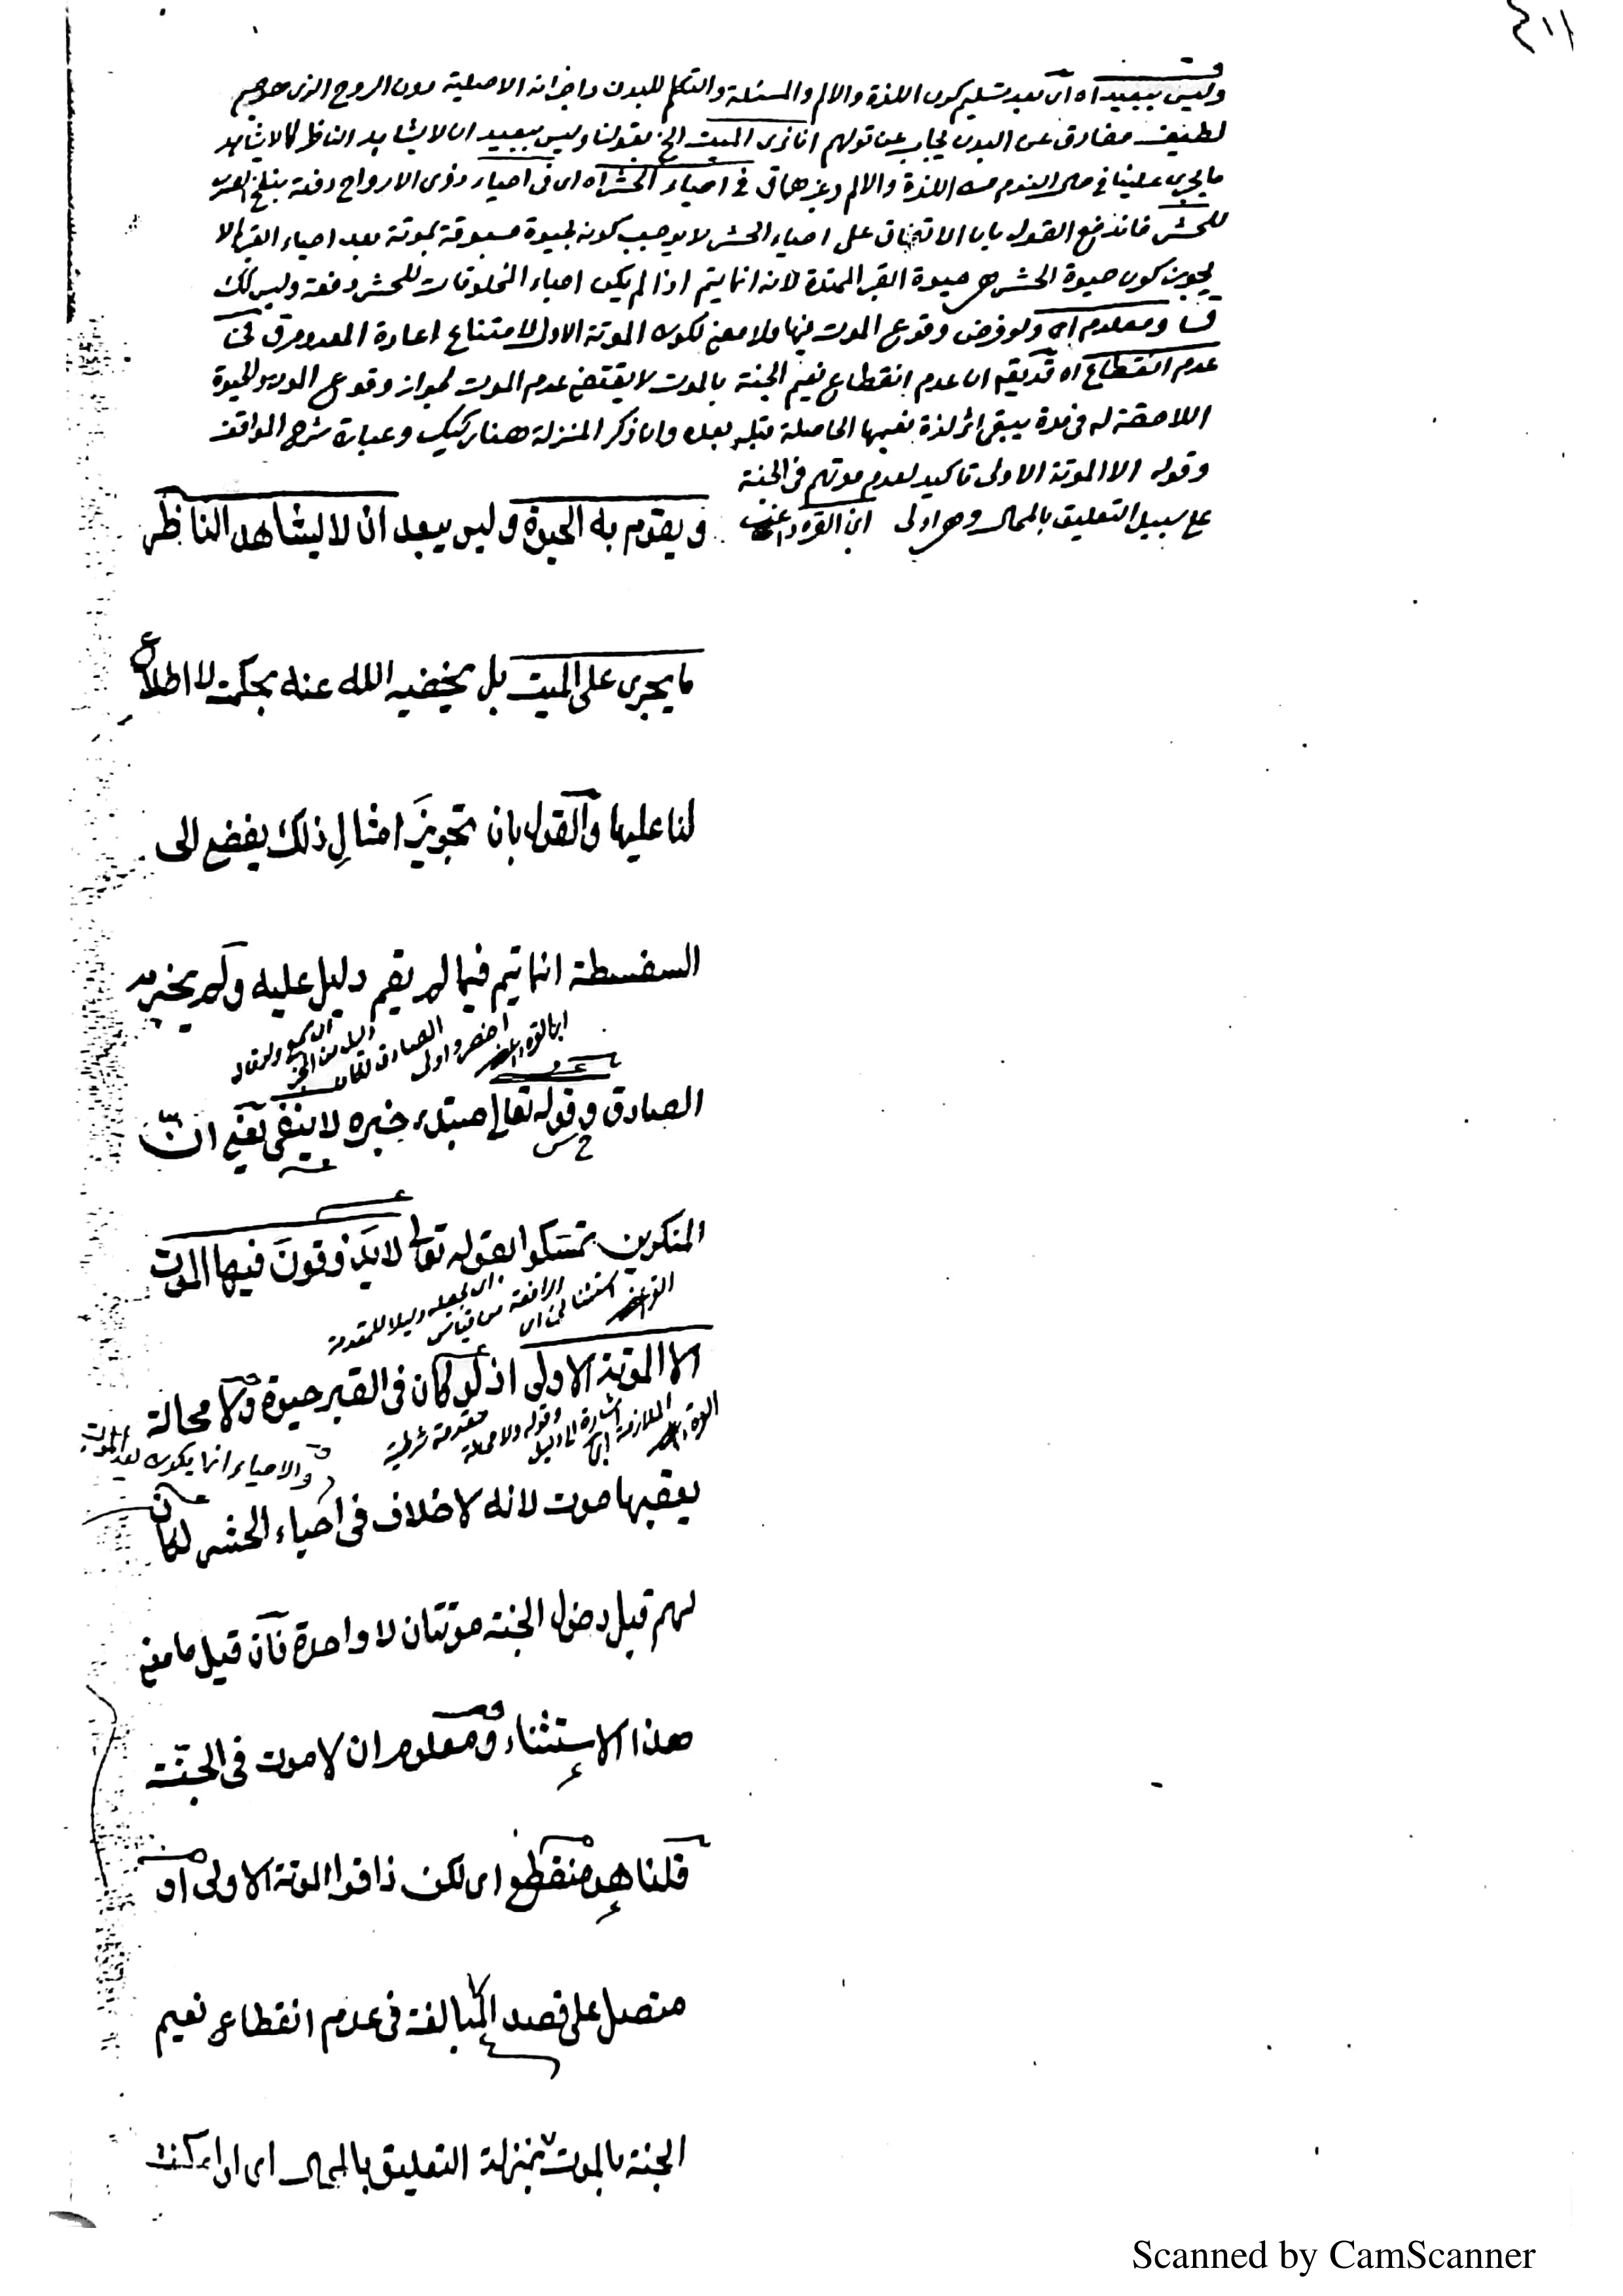 ٤١١
وليس ببعيد اه اى بعد تسليم كون اللذة والالم والمسئلة والتكلم للبدن واجزائه الاصلية دون الروح الذى هو جسم
لطيف مفارق عن البدن يجاب عن قولهم انا نرى الميت الخ بقولنا وليس ببعيد ان لا يشاهد الناظر كما لا يشاهد
ما يجرى علينا فى حال النوم من اللذة والالم وغيرهما ق فى احياء الحشر اه اى فى احياء ذوى الارواح دفعة
للحشر فاندفع القول بان الاتفاق على احياء الحشر لا يوجب كونه لحيوة مسبوقة بموتة بعد احياء القبر الا
يجوز كون حيوة الحشر هى حيوة القبر الممتدة لانه انما يتم اذا لم يكن احياء المخلوقات للحشر دفعة وليس كك
ق ومعلوم اه ولو فرض وقوع الموت فيها فلا معنى لكونه الموتة الاولى لامتناع اعادة المعدوم ق
عدم انقطاع اه قد يقه ان عدم انقطاع نعيم الجنة بالموت لا يقتضى عدم الموت لجواز وقوع الموت والحيوة
اللاحقة له فى مدة يبقى اثر لذة نعيمها الحاصلة قبله بعده وان ذكر المنزلة هنا ركيك وعبارة شرح المواقف
وقوله الا الموتة الاولى تاكيد لعدم موتهم فى الجنة
على سبيل التعليق بالمحال وهو اولى ابن القره داغى
ويقوم به الحيوة وليس ببعد ان لا يشاهد الناظر
ما يجرى على الميت بل يخفيه الله عنه بحكمة لا اطلاع
لنا عليها والقول بان تجويز امثال ذلك يفضى الى
السفسطة انما يتم فيما لم يقم دليل عليه ولم يخبر به
اخصر واولى
الصادق وقوله تعالى مبتدء خبره لا ينفى يعنى ان
المنكرين تمسكوا بقوله تعالى لا يذوقون فيها الموت
اى يجعله دليلا للمقدمة
الا الموتة الاولى اذ لو كان فى القبر حيوة ولا محالة
الملازمة اشارة الى دليل
وقوله ولا محالة
مقدمة شرطية
والاحياء انما يكون بعد الموت
يعقبها موت لانه لا خلاف فى احياء الحشر لكان
لهم قبل دخول الجنة موتتان لا واحدة فان قيل ما معنى
هذا الاستثناء ومعلوم ان لا موت فى الجنة
قلنا هو منقطع اى لكن ذاقوا الموتة الاولى او
متصل على قصد المبالغة فى عدم انقطاع نعيم
الجنة بالموت بمنزلة التعليق بالمحال اى
Scanned by CamScanner